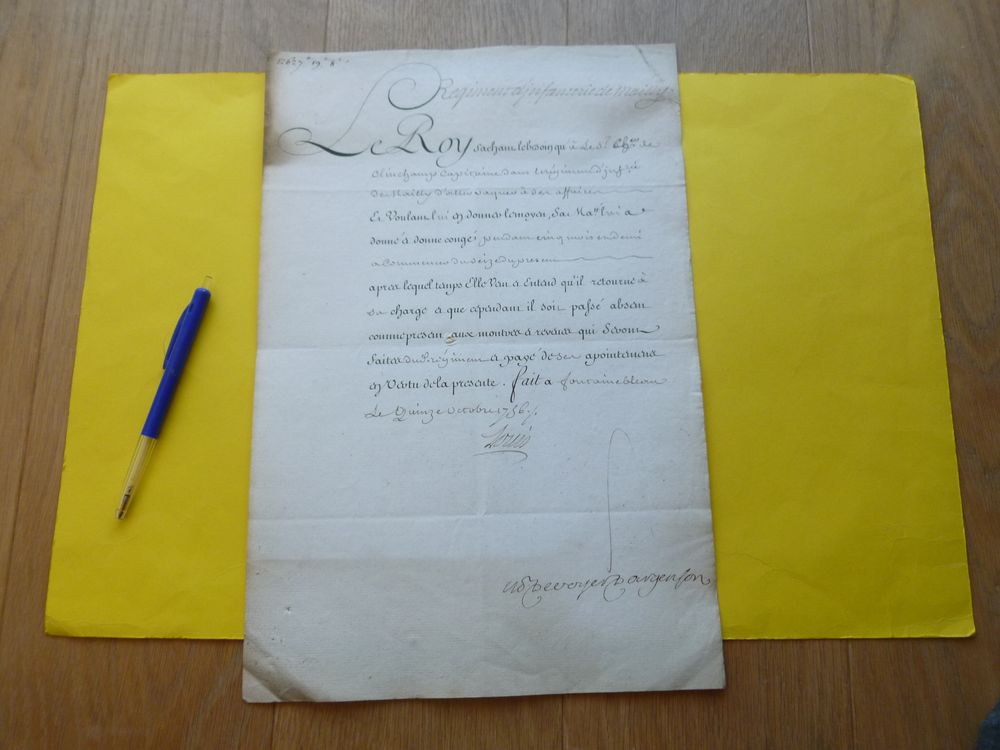 Regiment d'Infanterie de Mailly
Le Roy sachant le besoin qu'a Le Sr. Cher. de
Clinchamps Capitaine dans le régiment d'infrie.
de Mailly d'aller vaquer à ses affaires
Et Voulant lui en donner le moyen, Sa Mate. lui a
donné et donne congé pendant cinq mois et demi
a commencer du seize du present
apres lequel temps Elle Veut et Entend qu'il retourne à
sa charge et que cépendant il soit passé absent
comme present aux montres et reveues qui Seront
faites dud. Régiment et payé de ses apointemens
en Vertu de la presente. fait a fontainebleau
Le Quinze Octobre 1756./.
Louis
De voyer D'argenson